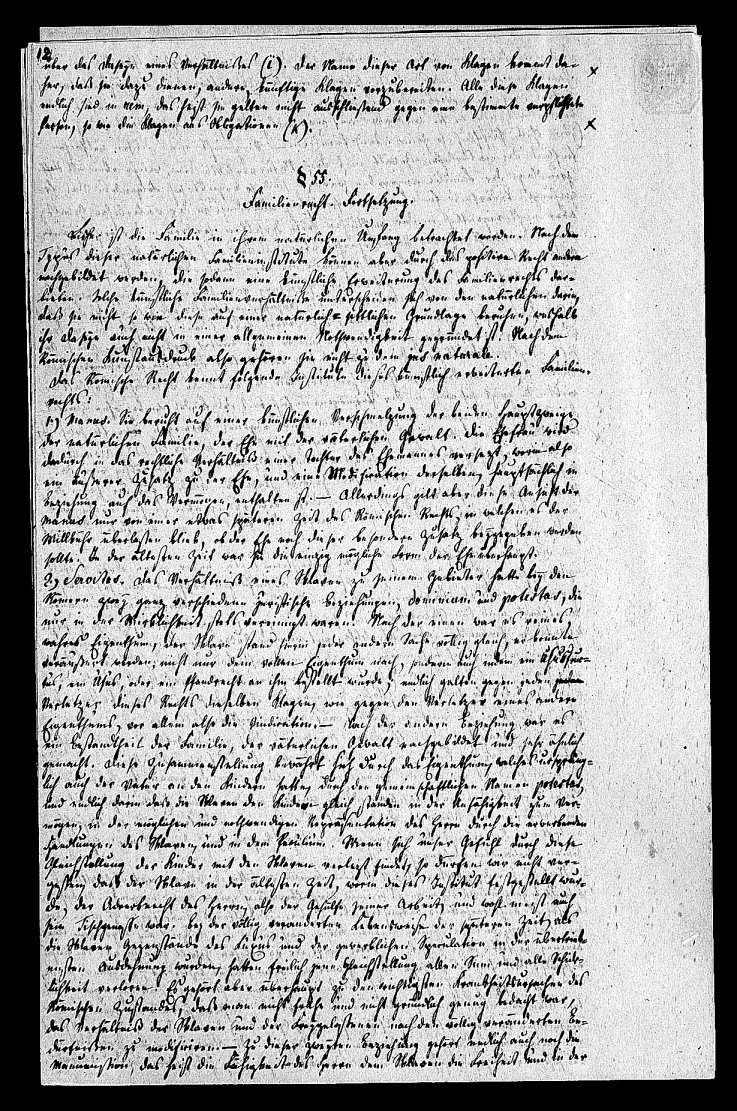 12
über das Daseyn eines Verhältnisses (i). Der Name dieser Art von Klagen kommt da-
her, daß sie dazu dienen, andere, künftige Klagen vorzubereiten. Alle diese Klagen
endlich sind in rem, das heißt sie gelten nicht ausschließend gegen eine bestimmte verpflichtete
Person, so wie die Klagen aus Obligationen (k).
§ 55.
Familienrecht. Fortsetzung.
Bisher ist die Familie in ihrem natürlichen Umfang betrachtet worden. Nach dem
Typus dieser natürlichen Familieninstitute können aber durch das positive Recht andere
nachgebildet werden, die sodann eine künstliche Erweiterung des Familienrechts dar-
bieten. Solche künstliche Familienverhältnisse unterscheiden sich von den natürlichen darin,
daß sie nicht so wie diese auf einer natürlich-sittlichen Grundlage beruhen, weshalb
ihr Daseyn auch nicht in einer allgemeinen Nothwendigkeit gegründet ist. Nach dem
Römischen Kunstausdruck also gehören sie nicht zu dem jus naturale.
Das Römische Recht kennt folgende Institute dieses künstlich erweiterten Familien-
rechts:
1.) Manus. Sie beruht auf einer künstlichen Verschmelzung der beiden Hauptzweige
der natürlichen Familie, der Ehe mit der väterlichen Gewalt. Die Ehefrau wird
dadurch in das rechtliche Verhältniß einer Tochter des Ehemannes versezt, worin also
ein äußerer Zusatz zu der Ehe, und eine Modification derselben, hauptsächlich in
Beziehung auf das Vermögen, enthalten ist. — Allerdings gilt aber diese Ansicht der
Manus nur von einer etwas späteren Zeit des Römischen Rechts, in welchen es der
Willkühr überlassen blieb, ob der Ehe noch dieser besondere Zusatz beygegeben werden
sollte. In der ältesten Zeit war sie die einzig mögliche Form der Ehe überhaupt.
2.) Servitus. Das Verhältniß eines Sklaven zu seinem Gebieter hatte bey den
Römern zwey ganz verschiedene juristische Beziehungen, dominium und potestas, die
nur in der Wirklichkeit stets vereinigt waren. Nach der einen war es reines,
wahres Eigenthum; der Sklave stand hierin jeder andern Sache völlig gleich, er konnte
veräußert werden, nicht nur dem vollen Eigenthum nach, sondern auch indem ein Ususfruc-
tus, ein Usus, oder ein Pfandrecht an ihm bestellt wurde; endlich galten gegen jeden
Verletzer dieses Rechts dieselben Klagen, wie gegen den Verletzer eines andern
Eigenthums, vor allem also die Vindication. — Nach der andern Beziehung war es
ein Bestandtheil der Familie, der väterlichen Gewalt nachgebildet und sehr ähnlich
gemacht. Diese Zusammenstellung bewährt sich durch das Eigenthum, welches ursprüng-
lich auch der Vater an den Kindern hatte, durch den gemeinschaftlichen Namen potestas,
und endlich darin daß die Sklaven den Kindern gleich standen in der Unfähigkeit zum Ver-
mögen, in der möglichen und nothwendigen Repräsentation des Herrn durch die erwerbenden
Handlungen des Sklaven, und in dem Peculium. Wenn sich unser Gefühl durch diese
Gleichstellung der Kinder mit den Sklaven verlezt findet, so dürfen wir nicht ver-
gessen, daß der Sklave in der ältesten Zeit, worin dieses Institut festgestellt wur-
de, der Ackerknecht des Herrn, also der Gehülfe seiner Arbeit, und wohl meist auch
sein Tischgenosse war. Bey der völlig veränderten Lebensweise der späteren Zeit, als
die Sklaven Gegenstände des Luxus und der gewerblichen Speculation in der übertrie-
bensten Ausdehnung wurden, hatte freilich jene Gleichstellung allen Sinn und alle Schick-
lichkeit verloren. Es gehört aber überhaupt zu den wichtigsten Krankheitsursachen des
Römischen Zustandes, daß man nicht frühe und nicht gründlich genug bedacht war,
das Verhältniß der Sklaven und der Freygelassenen nach den völlig veränderten Be-
dürfnissen zu modificiren. — Zu dieser zweyten Beziehung gehört endlich auch noch die
Manumission, das heißt die Fähigkeit des Herrn dem Sklaven die Freiheit und in der